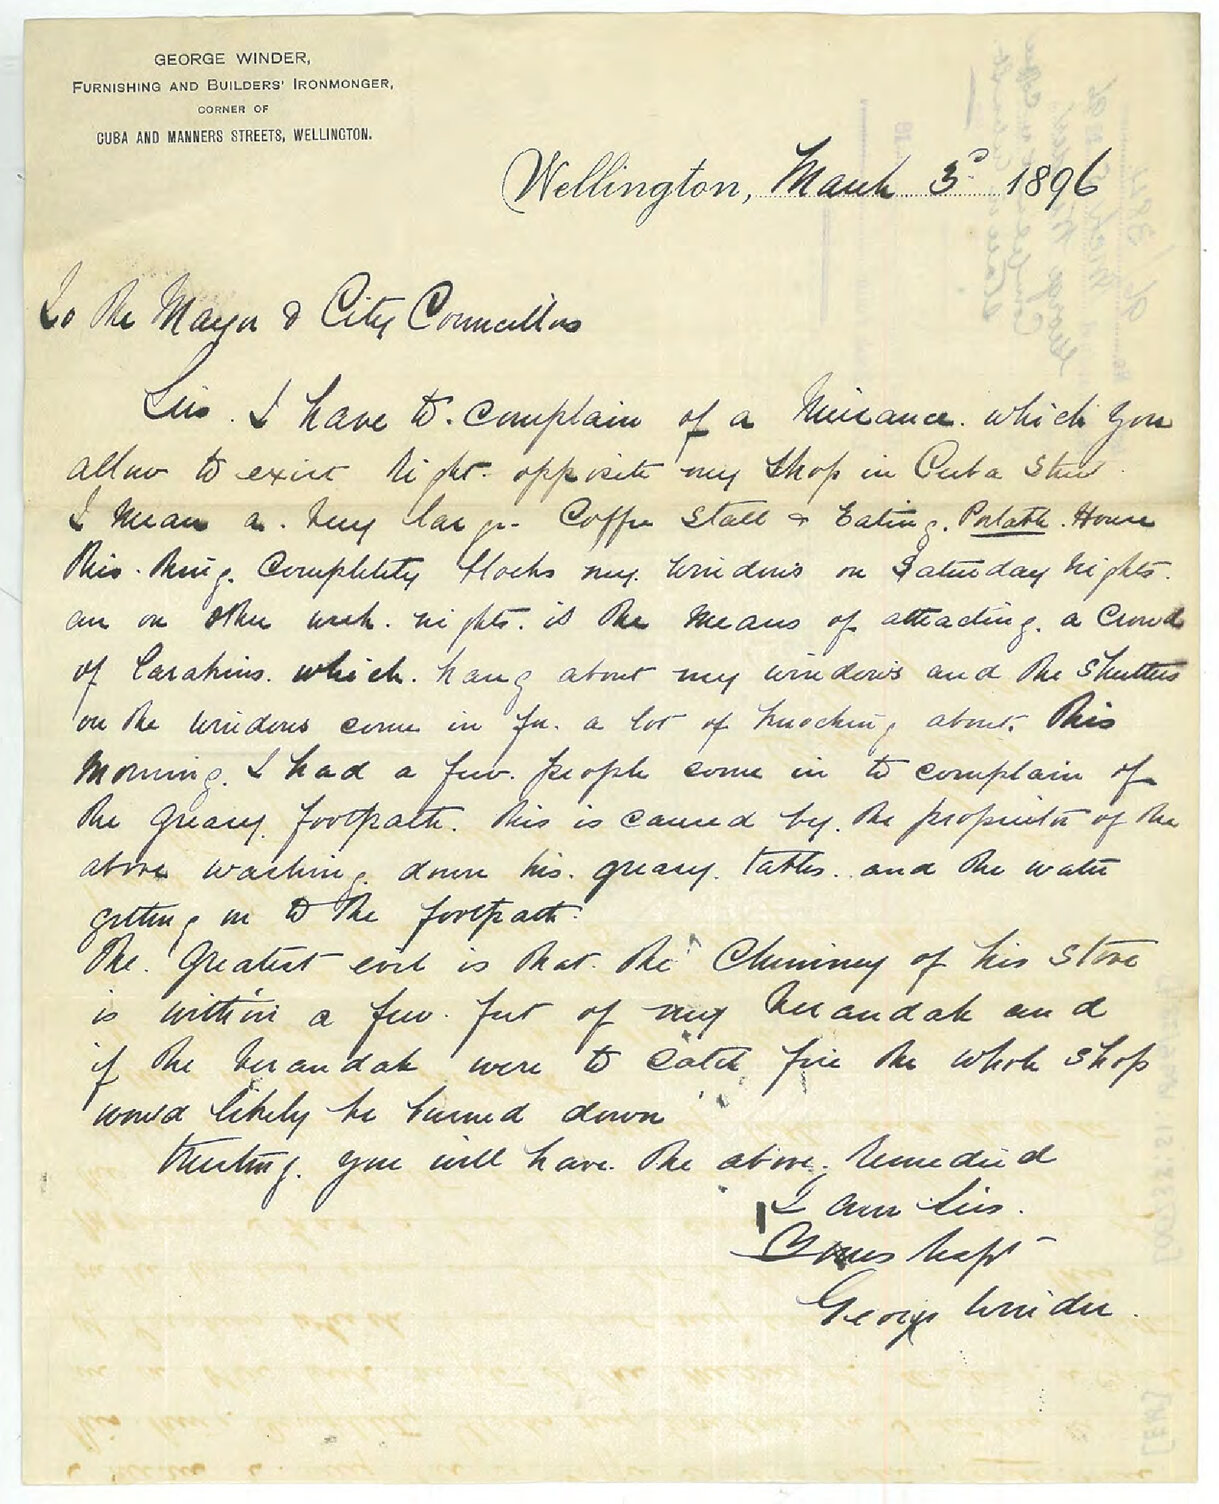 GEORGE WINDER,
FURNISHING AND BUILDERS' IRONMONGER,
CORNER OF
CUBA AND MANNERS STREETS, WELLINGTON.
Wellington, March 3d 1896
To the Mayor & City Councillors
Sirs. I have to complain of a Nuisance which you
allow to exist right opposite my shop in Cuba Street
I mean a very large Coffee Stall & Eating Portable House
This thing completely blocks my windows on Saturday nights.
an on other week nights is the means of attracting a crowd
of Larakins which hang about my windows and the shutters
on the windows come in for a lot of knocking about. This
morning I had a few people come in to complain of
the greasy footpath. this is caused by the proprietor of the
above washing down his greasy tables and the water
getting on to the footpath.
The greatest evil is that the Chimney of his stove
is within a few feet of my Verandah and
if the Verandah were to catch fire the whole shop
would likely be burned down
Trusting you will have the above remedied
I am Sirs.
Yours Respt
George Winder.